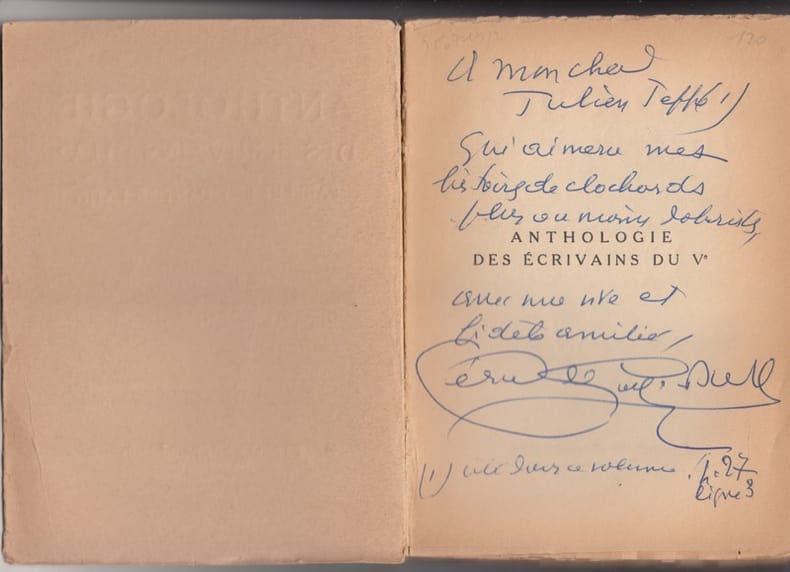 A mon cher
Julien Teppe 1)
Qui aimera mes
histoires de clochards
plus ou moins
ANTHOLOGIE
DES ÉCRIVAINS DU Vᵉ
avec ma vive et
fidèle amitié,
(1) cité dans ce volume. p. 27
ligne 3